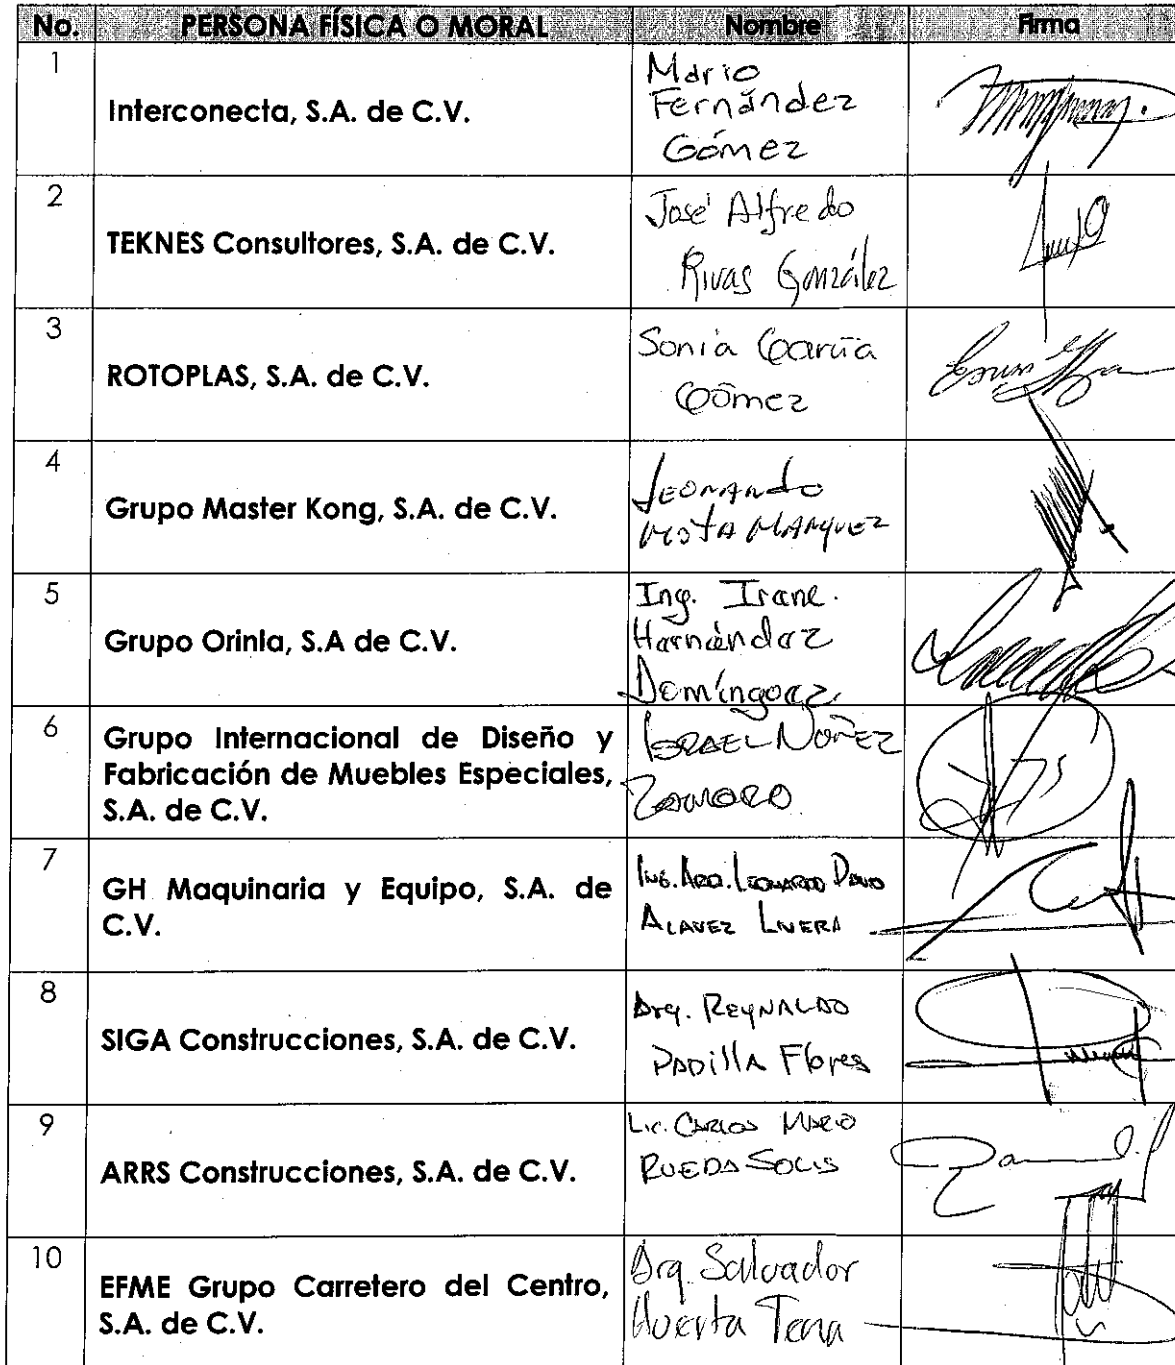 No. PERSONA FÍSICA O MORAL Nombre Firma
1
Interconecta, S.A. de C.V.
Mario
Fernández
Gómez
2
TEKNES Consultores, S.A. de C.V.
José Alfredo
Rivas González
3
ROTOPLAS, S.A. de C.V.
Sonia García
Gómez
4
Grupo Master Kong, S.A. de C.V.
Leonardo
Mota Marquez
5
Grupo Orinla, S.A de C.V.
Ing. Irane.
Hernández
Domínguez
6
Grupo Internacional de Diseño y
Fabricación de Muebles Especiales,
S.A. de C.V.
ISRAEL NÚÑEZ
7
GH Maquinaria y Equipo, S.A. de
C.V.
ING. ARQ. LEONARDO
ALAVEZ
8
SIGA Construcciones, S.A. de C.V.
Arq. REYNALDO
PADIllA Flores
9
ARRS Construcciones, S.A. de C.V.
Lic. CARLOS MARIO
RUEDA SOLIS
10
EFME Grupo Carretero del Centro,
S.A. de C.V.
Arq. Salvador
Huerta Tena